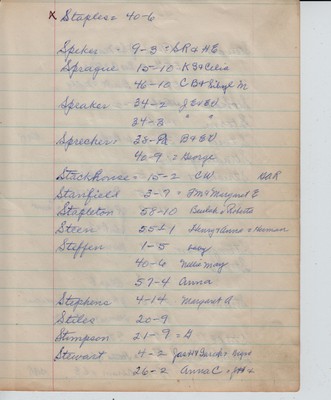 x Staples = 40-6
Speker = 9-3 = S R & H E
Sprague 15-10 K B & Celia
46-10 C B & Sibyl M.
Speaker 34-2 J E & E V
34-7 " "
Sprecher 28- B & E V
40-9 = George
Stackhouse = 15-2 C W. DAR
Stanfield 3-9 = & Margaret E
Stapleton 58-10 Beulah & Roberta
Steen 55-1 Henry & Anna & Herman
Steffen 1-5
40-6 Nellie May
57-4 Anna
Stephens 4-14 Margaret A.
Stiles 20-9
Stimpson 21-9 =
Stewart 4-2 Jos H &
26-2 Anna C =